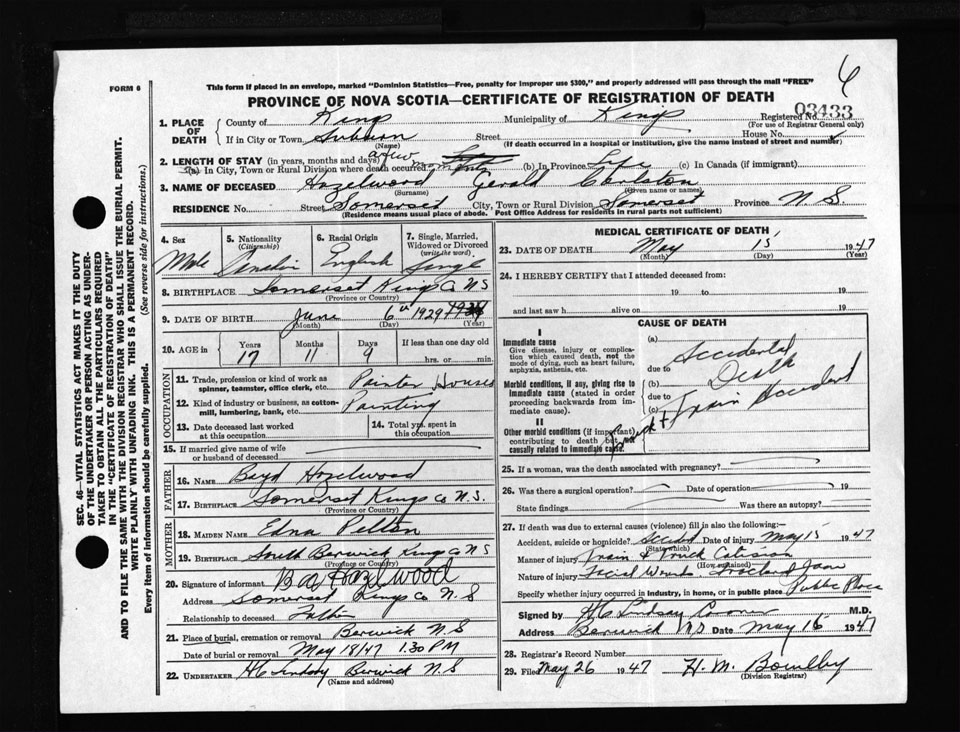 4
FORM 6
This form if placed in an envelope, marked "Dominion Statistics—Free, penalty for improper use $300," and properly addressed will pass through the mail "FREE"
PROVINCE OF NOVA SCOTIA—CERTIFICATE OF REGISTRATION OF DEATH
03433
1. PLACE OF DEATH
County of Kings Municipality of Kings Registered No.
(For use of Registrar General only)
If in City or Town Street House No.
(Name) (If death occurred in a hospital or institution, give the name instead of street and number)
2. LENGTH OF STAY (in years, months and days) a few
(a) In City, Town or Rural Division where death occurred (b) In Province Life (c) In Canada (if immigrant)
3. NAME OF DECEASED Hazelwood Gerald Carleton
(Surname) (Given name or names)
RESIDENCE No. Street Somerset City, Town or Rural Division Somerset Province N. S.
(Residence means usual place of abode. Post Office Address for residents in rural parts not sufficient)
4. Sex
Male
5. Nationality
(Citizenship)
Canadian
6. Racial Origin
English
7. Single, Married, Widowed or Divorced
(write the word)
Single
8. BIRTHPLACE Somerset Kings Co NS
(Province or Country)
9. DATE OF BIRTH June 6th 1929
(Month) (Day) (Year)
10. AGE in Years Months Days If less than one day
17 11 9 hrs. or min.
OCCUPATION
11. Trade, profession or kind of work as spinner, teamster, office clerk, etc. Painter Houses
12. Kind of industry or business, as cotton-mill, lumbering, bank, etc. Painting
13. Date deceased last worked at this occupation
14. Total yrs. spent in this occupation
15. If married give name of wife or husband of deceased
FATHER
16. NAME Boyd Hazelwood
17. BIRTHPLACE Somerset Kings Co N.S.
(Province or Country)
MOTHER
18. MAIDEN NAME Edna Pelton
19. BIRTHPLACE South Berwick Kings Co NS
(Province or Country)
20. Signature of informant Hazelwood
Address Somerset Kings Co N.S
Relationship to deceased Father
21. Place of burial, cremation or removal Berwick N.S
Date of burial or removal May 18/47 1.30 PM
22. UNDERTAKER HC Lindsay Berwick N.S
(Name and address)
MEDICAL CERTIFICATE OF DEATH
23. DATE OF DEATH May 15 1947
(Month) (Day) (Year)
24. I HEREBY CERTIFY that I attended deceased from:
19 to 19
and last saw h alive on 19
CAUSE OF DEATH
I
Immediate cause
Give disease, injury or complication which caused death, not the mode of dying, such as heart failure, asphyxia, asthenia, etc.
Morbid conditions, if any, giving rise to immediate cause (stated in order proceeding backwards from immediate cause).
II
Other morbid conditions (if important) contributing to death but not causally related to immediate cause.
(a) Accidental
due to
(b) Death
due to
(c)
Truck + Train Accident
25. If a woman, was the death associated with pregnancy?
26. Was there a surgical operation? Date of operation 19
State findings Was there an autopsy?
27. If death was due to external causes (violence) fill in also the following:—
Accident, suicide or homicide? Accident Date of injury May 15 1947
(State which)
Manner of injury Train & Truck Collision
(How sustained)
Nature of injury Facial Wounds
Specify whether injury occurred in industry, in home, or in public place Public Place
Signed by HC Lindsay Coroner M.D.
Address Berwick NS Date May 16 1947
28. Registrar's Record Number
29. Filed May 26 1947 H. M. Bowlby
(Division Registrar)
SEC. 46—VITAL STATISTICS ACT MAKES IT THE DUTY OF THE UNDERTAKER OR PERSON ACTING AS UNDERTAKER TO OBTAIN ALL THE PARTICULARS REQUIRED IN THE "CERTIFICATE OF REGISTRATION OF DEATH" AND TO FILE THE SAME WITH THE DIVISION REGISTRAR WHO SHALL ISSUE THE BURIAL PERMIT.
WRITE PLAINLY WITH UNFADING INK. THIS IS A PERMANENT RECORD.
Every item of information should be carefully supplied. (See reverse side for instructions.)